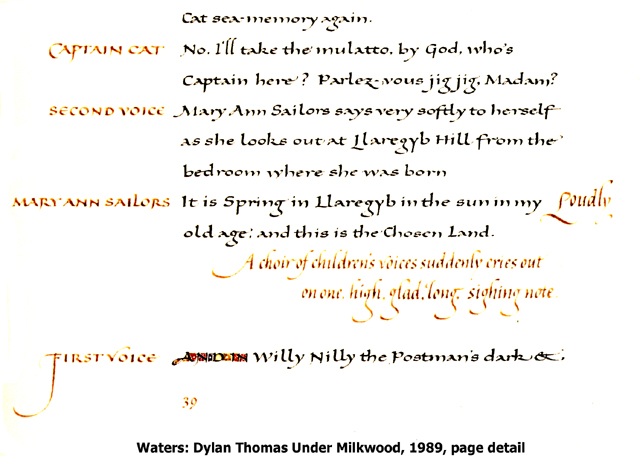 Cat sea-memory again.
CAPTAIN CAT No. I'll take the mulatto, by God, who's
Captain here? Parlez-vous jig jig, Madam?
SECOND VOICE Mary Ann Sailors says very softly to herself
as she looks out at Llaregyb Hill from the
bedroom where she was born
MARY ANN SAILORS It is Spring in Llaregyb in the sun in my Loudly
old age; and this is the Chosen Land.
A choir of children's voices suddenly cries out
on one, high, glad, long, sighing note.
FIRST VOICE Willy Nilly the Postman's dark &
39
Waters: Dylan Thomas Under Milkwood, 1989, page detail